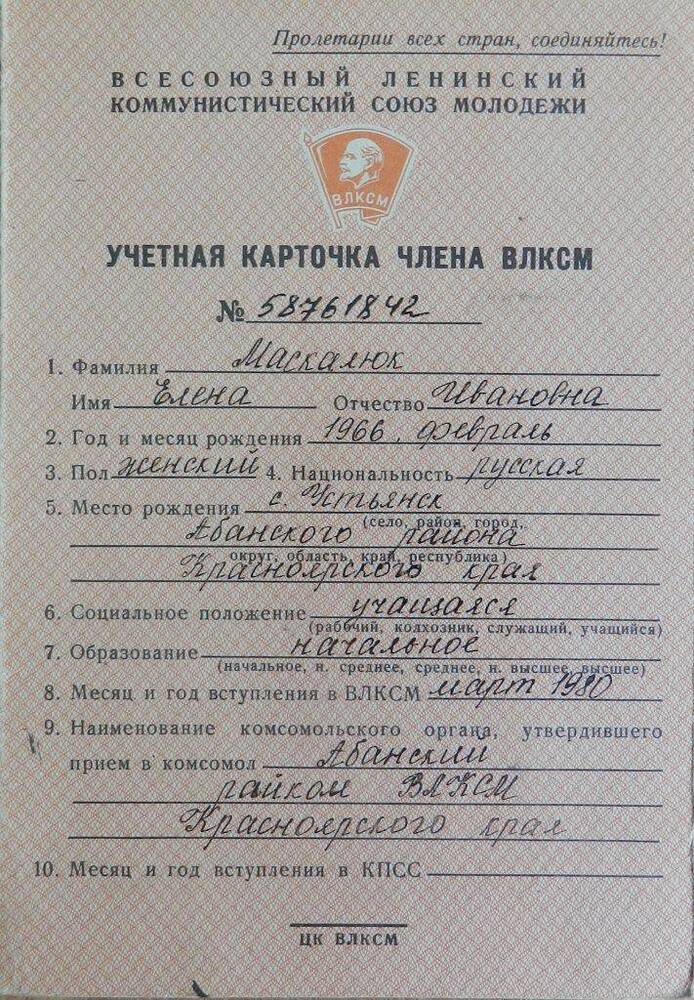 Пролетарии всех стран, соединяйтесь!
ВСЕСОЮЗНЫЙ ЛЕНИНСКИЙ
КОММУНИСТИЧЕСКИЙ СОЮЗ МОЛОДЕЖИ
ВЛКСМ
УЧЕТНАЯ КАРТОЧКА ЧЛЕНА ВЛКСМ
№ 58761842
1. Фамилия Маскалюк
Имя Елена Отчество Ивановна
2. Год и месяц рождения 1966, февраль
3. Пол женский 4. Национальность русская
5. Место рождения с. Устьянск
(село, район, город,
Абанского района
округ, область, край, республика)
Красноярского края
6. Социальное положение учащаяся
(рабочий, колхозник, служащий, учащийся)
7. Образование начальное
(начальное, н. среднее, среднее, н. высшее, высшее)
8. Месяц и год вступления в ВЛКСМ март 1980
9. Наименование комсомольского органа, утвердившего
прием в комсомол Абанский
райком ВЛКСМ
Красноярского края
10. Месяц и год вступления в КПСС
ЦК ВЛКСМ